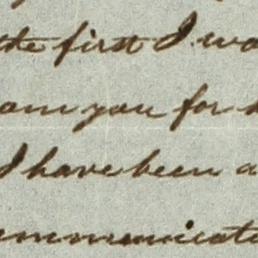 the first I wo
am you for
I have been a
ommunicate